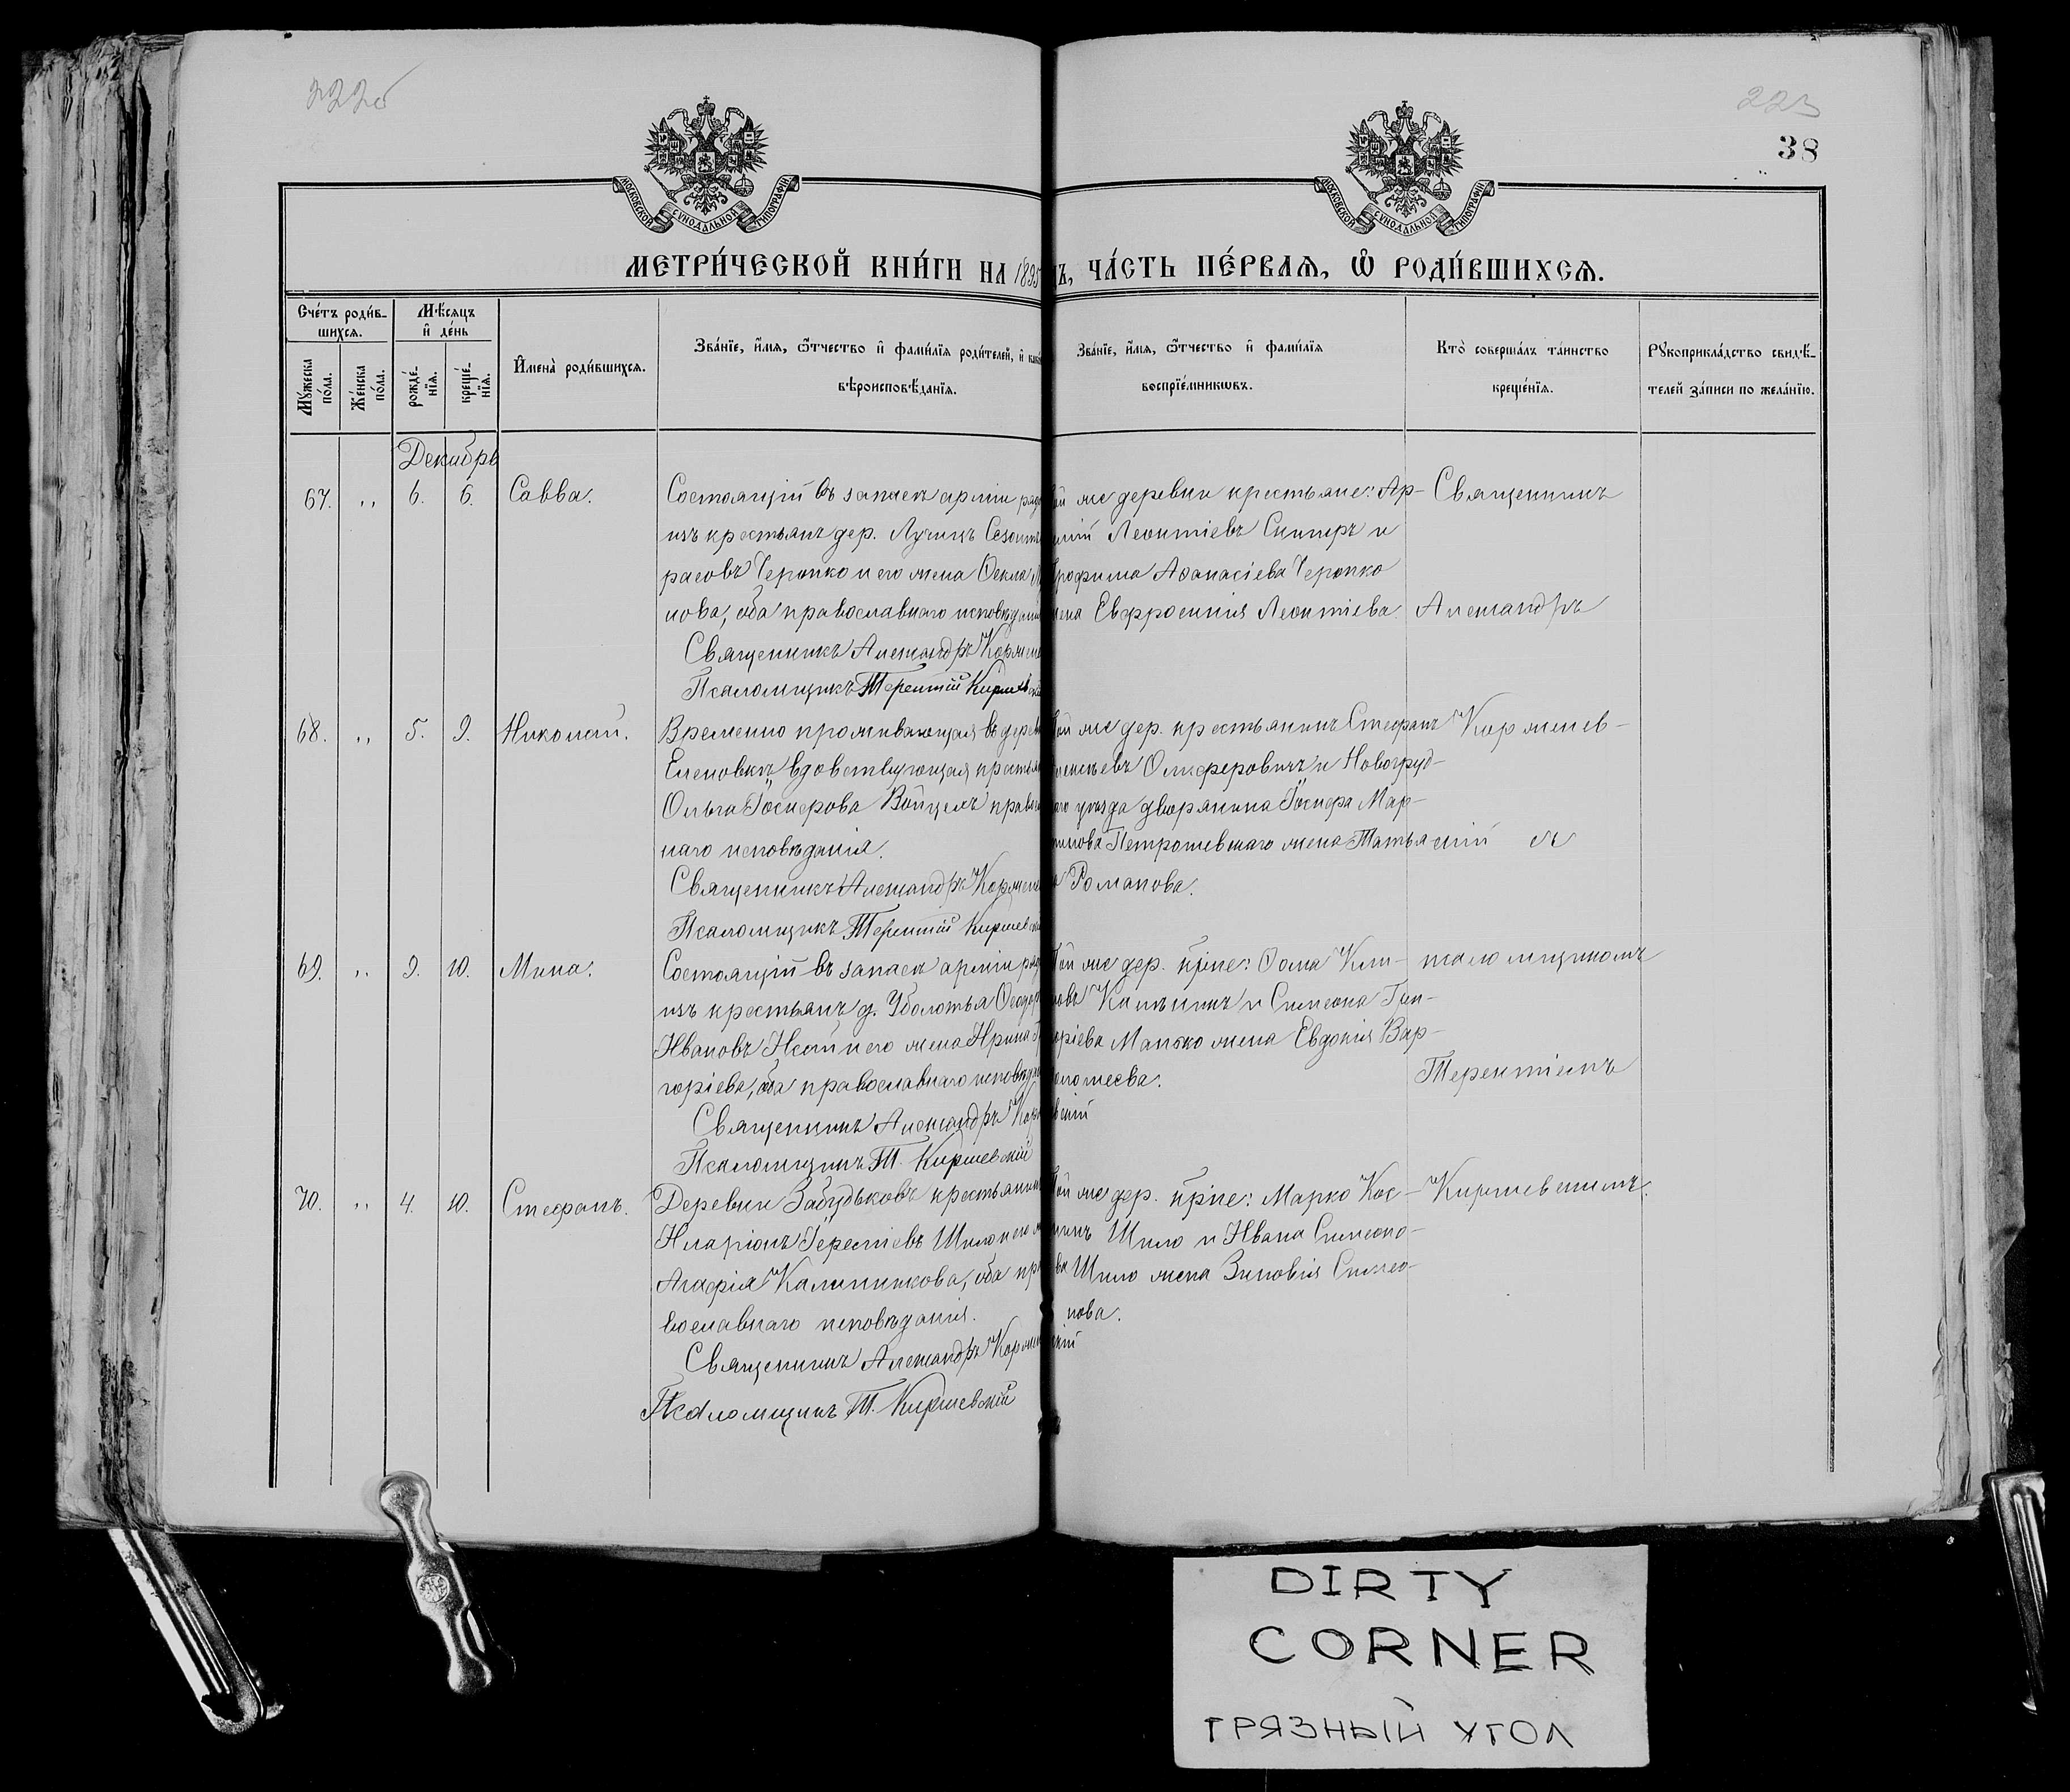 222об
223
38
МОСКОВСКОЙ СѴНОДАЛЬНОЙ ТИПОГРАФІИ
МОСКОВСКОЙ СѴНОДАЛЬНОЙ ТИПОГРАФІИ
МЕТРИ́ЧЕСКОЙ КНИ́ГИ НА 1895
Ъ, ЧА́СТЬ ПЕ́РВАЯ, Ѿ РОДИ́ВШИХСЯ.
Сче́тъ роди́в-
шихся.
Мѣ́сяцъ
и҆ де́нь
Му́жеска
по́ла.
Же́нска
по́ла.
рожде́-
нїя.
креще́-
нїя.
И҆мена̀ роди́вшихся.
Зва́нїе, и҆́мя, ѻ҆́тчество и҆ фами́лїя роди́телей, и҆
вѣроисповѣ́данїя.
Зва́нїе, и҆́мя, ѻ҆́тчество и҆ фами́лїя
воспрїе́мникѡвъ.
Кто̀ соверша́лъ та́инство
креще́нїя.
Рꙋкоприкла́дство свидѣ́-
телей за́писи по жела́нїю.
Декабрь
67. ,, 6. 6. Савва.
Состоящій въ запасѣ арміи ряд
изъ крестьянъ дер. Лучицъ
расовъ Черопко и его жена Ѳекла
нова, оба православнаго исповѣдані
Священникъ Александръ Коржене
Псаломщикъ Терентій Киркевскі
ой же деревни крестьяне: Ар-
Леонтіевъ Скипиръ и
рофима Аѳанасіева Черопко
жена Евфросинія Леонтіева.
Священникъ
Александръ
68. ,, 5. 9. Николай.
Временно проживающая въ дерев
Еленовкѣ вдовствующая крестьян
Ольга Іосифова Войцехъ правос
наго исповѣданія.
Священникъ Александръ Коржене
Псаломщикъ Терентій Киркевскі
ой же дер. крестьянинъ Стефанъ
Олиферовичъ и Новогруд-
аго уѣзда дворянина Іосифа Мар-
тинова Петрошевскаго жена Татья
а Романова.
Корженев-
скій съ
69. ,, 9. 10. Мина.
Состоящій въ запасѣ арміи ряд
изъ крестьянъ д. Уболотья Ѳеодор
Ивановъ и его жена Ирина Г
горіева, оба православнаго исповѣда
Священникъ Александръ Кор
Псаломщикъ Т. Киркевскій
ой же дер. кр̃не: Ѳома Кли-
Калъшикъ и Симеона Гри-
оріева Манько жена Евдокія Вар-
оломеева.
вскій
псаломщикомъ
Терентіемъ
70. ,, 4. 10. Стефанъ.
Деревни Забудьковъ крестьянин
Иларіонъ Іереміевъ Шило и его ж
Агафія Калинникова, оба пра
вославнаго исповѣданія.
Священникъ Александръ Коржен
Псаломщикъ Т. Киркевскій
ой же дер. кр̃не: Марко Кос-
Шило и Ивана Симеоно-
ва Шило жена Зиновія Симео-
нова.
скій
Киркевскимъ.
DIRTY
CORNER
ГРЯЗНЫЙ УГОЛ